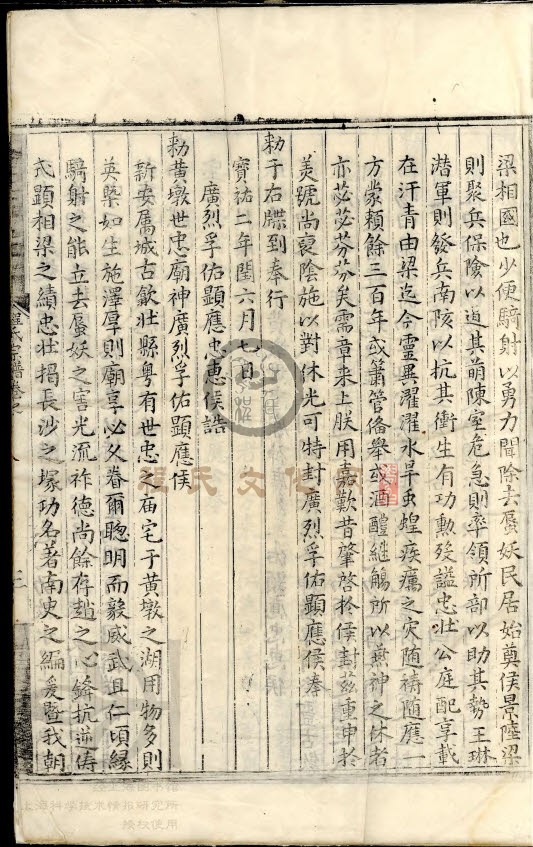 梁相國也少便騎射以勇力聞除去蜃妖民居始奠侯景陸梁
則聚兵保險以遏其萌陳室危急則率領所部以助其勢王琳
潜軍則發兵南陔以抗其衝生有功勲歿諡忠壯公庭配享載
在汗青由梁迄今靈異濯濯水旱虫蝗疾癘之灾随禱随應一
方蒙賴餘三百年或蕭管俻舉或酒醴継觴所以無神之休者
亦苾苾芬芬矣需章来上朕用嘉歎昔肇啓扵侯封茲重申扵
美號尚裒陰施以對休光可特封廣烈孚佑顯應侯奉
勅于右牒到奉行
寳祐二年閏六月七日
廣烈孚佑顯應忠惠侯誥
勅黄墩世忠廟神廣烈孚佑顯應侯
新安属城古歙壯縣粤有世忠之庙宅于黄墩之湖用物多則
英㮣如生施澤厚則廟享必乆眷爾聰明而毅威武且仁頃縁
騎射之能立去蜃妖之害光流祚德尚餘存趙之心鋒抗逆俦
式顯相梁之績忠壯揭長沙之塚功名著南史之編爰暨我朝
程氏宗譜卷之
三
程天文化
經上海图书馆
上海科学技术情报研究所
授权使用